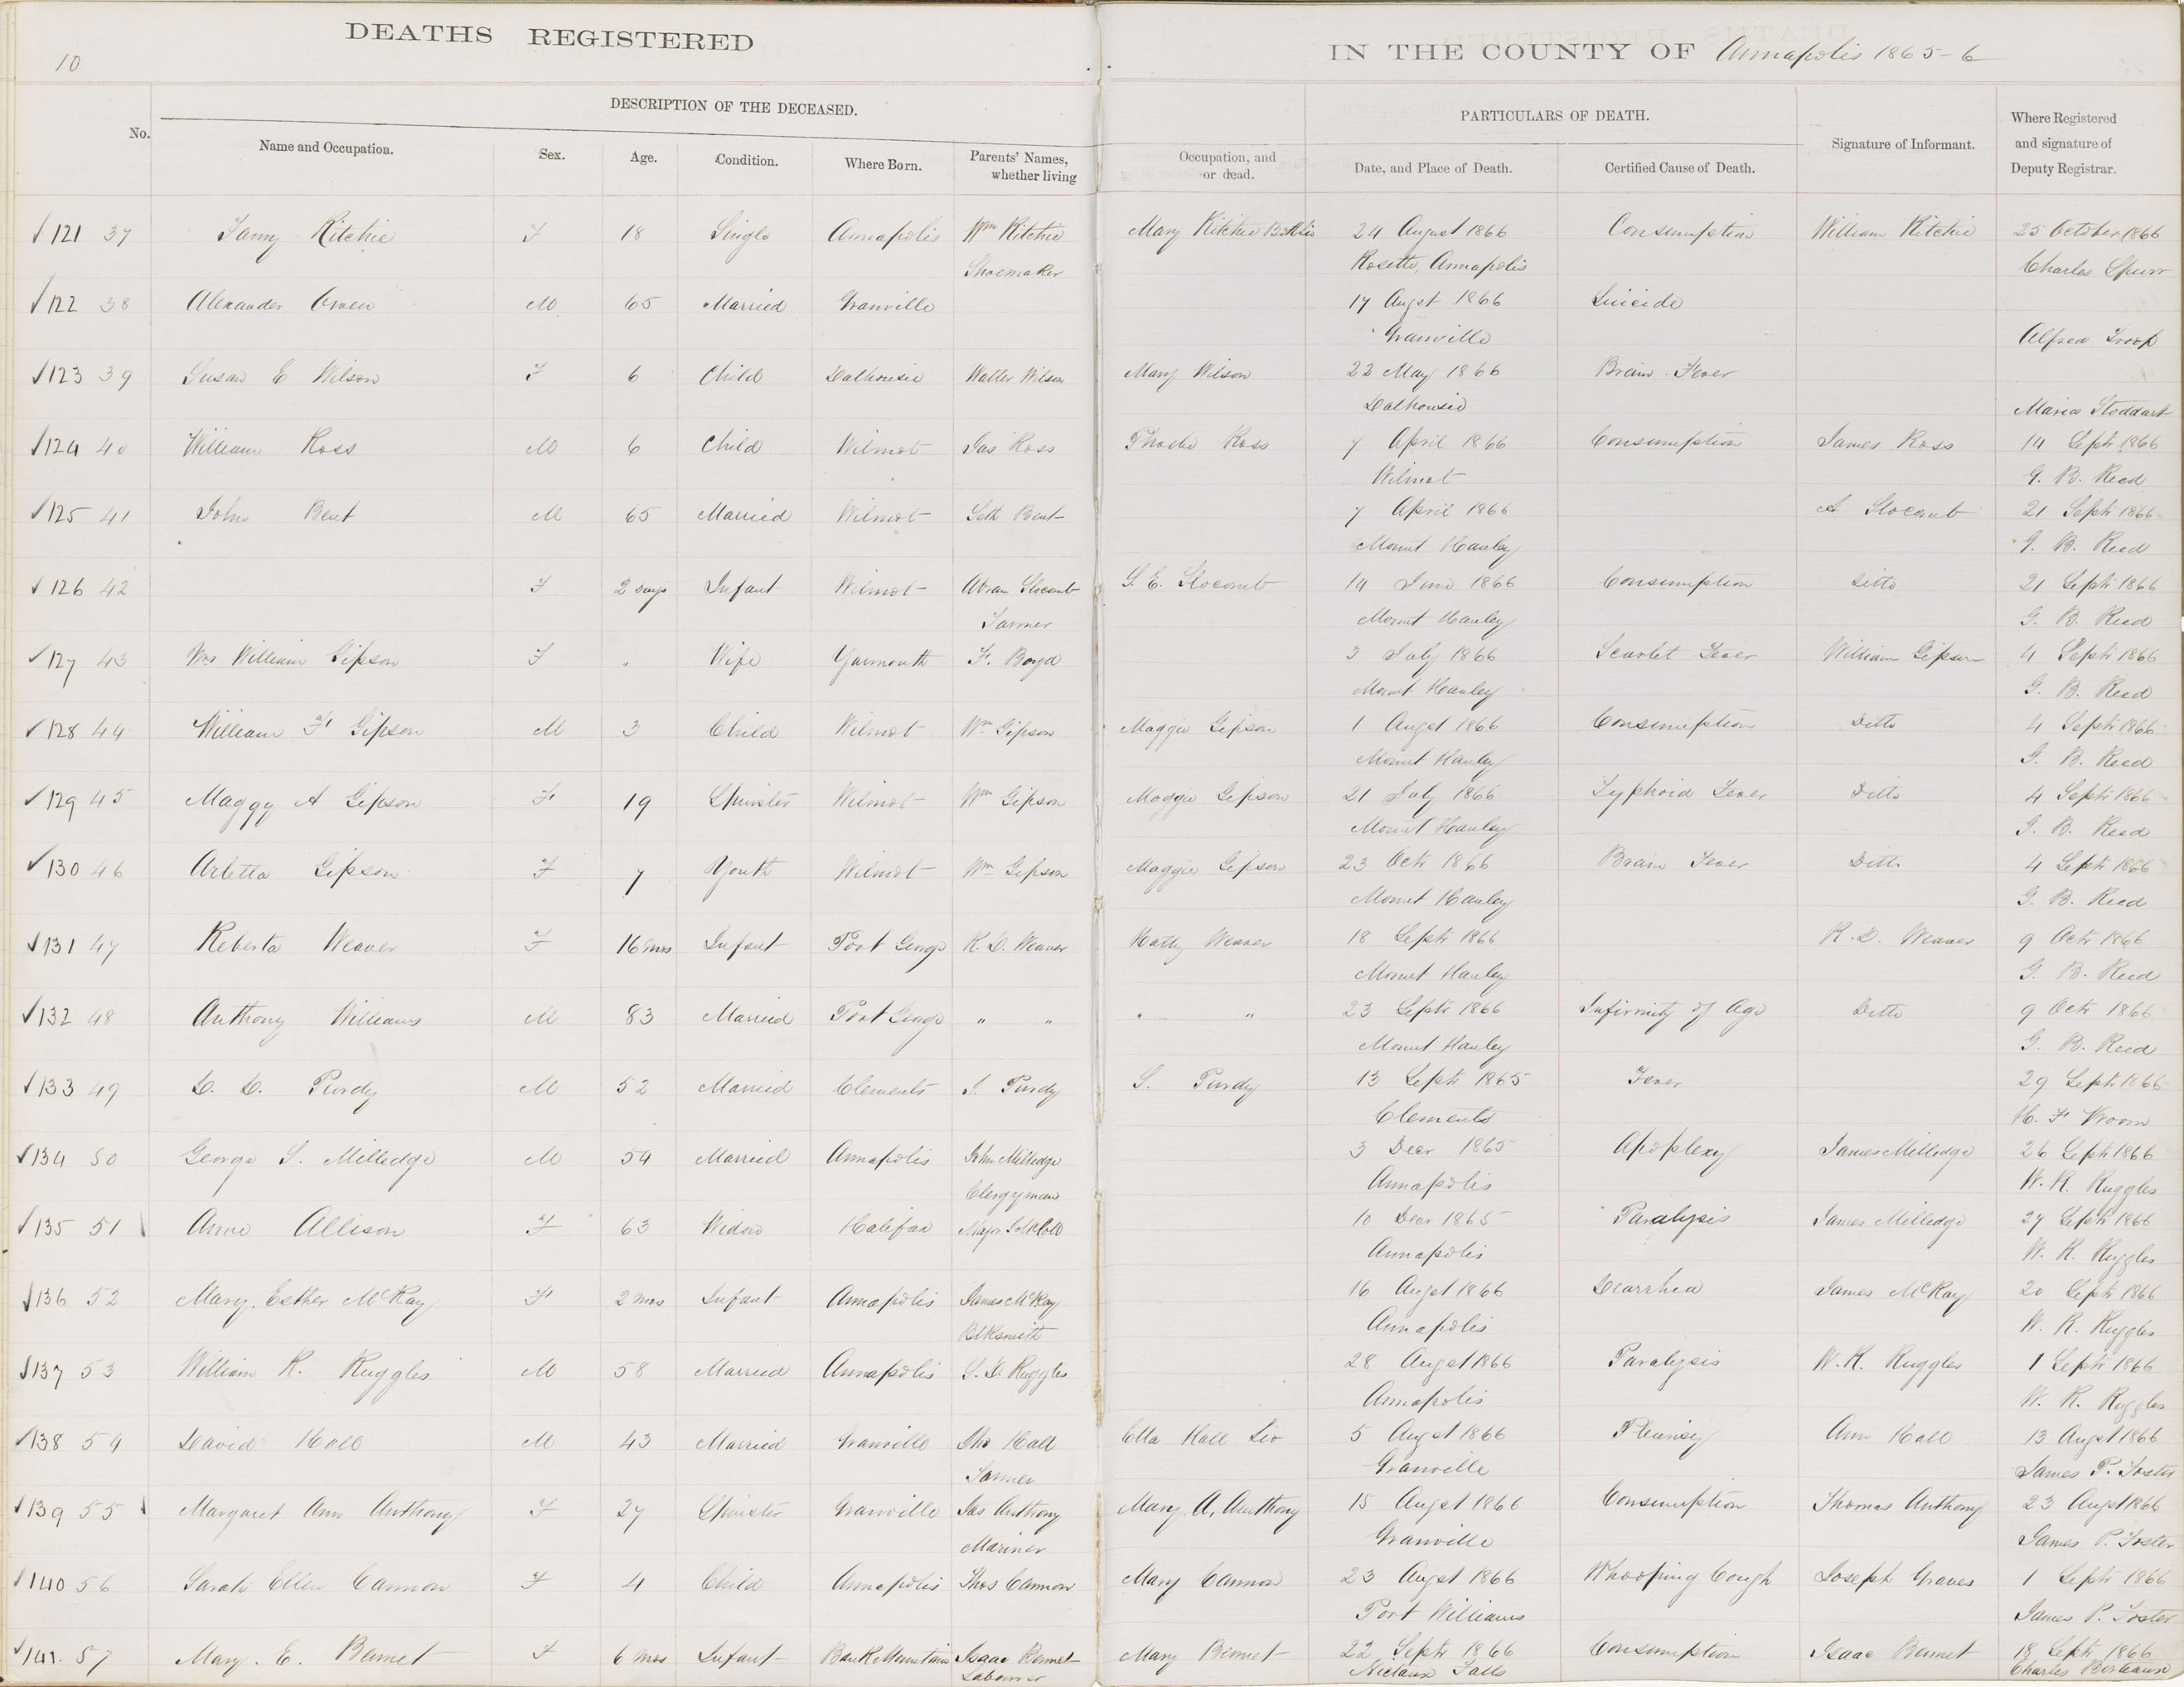 DEATHS REGISTERED
IN THE COUNTY OF Annapolis 1865-6
10
DESCRIPTION OF THE DECEASED.
PARTICULARS OF DEATH.
No.
Name and Occupation.
Sex.
Age.
Condition.
Where Born.
Parents' Names, whether living
Occupation, and or dead.
Date, and Place of Death.
Certified Cause of Death.
Signature of Informant.
Where Registered and signature of Deputy Registrar.
√121 37 Fanny Ritchie F 18 Single Annapolis Wm Ritchie Mary Ritchie Both Liv 24 August 1866 Consumption William Ritchie 25 October 1866
Shoemaker Rosette, Annapolis Charles Spurr
√122 38 Alexander Owen M 65 Married Granville 17 Augst 1866 Suicide
Granville Alfred Troop
√123 39 Susan E Wilson F 6 Child Dalhousie Walter Wilson Mary Wilson 22 May 1866 Brain Fever
Dalhousie Maria Stoddart
√124 40 William Ross M 6 Child Wilmot Jas Ross Phoebe Ross 7 April 1866 Consumption James Ross 14 Septr 1866
Wilmot G. B. Reed
√125 41 John Bent M 65 Married Wilmot Seth Bent 7 April 1866 A Slocomb 21 Septr 1866
Mount Hanley G. B. Reed
√126 42 F 2 days Infant Wilmot Abram Slocomb S. E. Slocomb 14 June 1866 Consumption Ditto 21 Septr 1866
Farmer Mount Hanley G. B. Reed
√127 43 Mrs William Gipson F Wife Yarmouth F. Boyd 3 July 1866 Scarlet Fever William Gipson 4 Septr 1866
Mount Hanley G. B. Reed
√128 44 William F Gipson M 3 Child Wilmot Wm Gipson Maggie Gipson 1 Augst 1866 Consumption Ditto 4 Septr 1866
Mount Hanley G. B. Reed
√129 45 Maggy A Gipson F 19 Spinster Wilmot Wm Gipson Maggie Gipson 21 July 1866 Typhoid Fever Ditto 4 Septr 1866
Mount Hanley G. B. Reed
√130 46 Arletta Gipson F 7 Youth Wilmot Wm Gipson Maggie Gipson 23 Octr 1866 Brain Fever Ditto 4 Septr 1866
Mount Hanley G. B. Reed
√131 47 Reberta Weaver F 16 mos Infant Port George R. D. Weaver Weaver 18 Septr 1866 R. D. Weaver 9 Octr 1866
Mount Hanley G. B. Reed
√132 48 Anthony Williams M 83 Married Port George " " " " 23 Septr 1866 Infirmity of Age Ditto 9 Octr 1866
Mount Hanley G. B. Reed
√133 49 D. D. Purdy M 52 Married Clements J. Purdy S. Purdy 13 Septr 1865 Fever 29 Septr 1866
Clements H. F Vroom
√134 50 George S. Milledge M 54 Married Annapolis John Milledge 3 Decr 1865 Apoplexy James Milledge 26 Septr 1866
Clergyman Annapolis W. R. Ruggles
√135 51 Anne Allison F 63 Widow Halifax Major 10 Decr 1865 Paralysis James Milledge 27 Septr 1866
Annapolis W. R. Ruggles
√136 52 Mary Esther McKay F 2 mos Infant Annapolis James McKay 16 Augst 1866 Dearrhea James McKay 20 Septr 1866
Blksmith Annapolis W. R. Ruggles
√137 53 William R. Ruggles M 58 Married Annapolis S. D. Ruggles 28 Augst 1866 Paralysis W. R. Ruggles 1 Septr 1866
Annapolis W. R. Ruggles
√138 54 David Hall M 43 Married Granville Hall Ella Hall Liv 5 Augst 1866 Pleurisy Ann Hall 13 Augst 1866
Farmer Granville James P. Foster
√139 55 Margaret Ann Anthony F 27 Spinster Granville Jas Anthony Mary A, Anthony 15 Augst 1866 Consumption Thomas Anthony 23 Augst 1866
Mariner Granville James P. Foster
√140 56 Sarah Ellen Cannon F 4 Child Annapolis Thos Cannon Mary Cannon 23 Augst 1866 Whooping Cough Joseph Graves 1 Septr 1866
Port Williams James P. Foster
√141. 57 Mary. E. Barnet F 6 mos Infant Bank Mountain Isaac Bernet Mary Bernet 22 Septr 1866 Consumption Isaac Burnet 18 Septr 1866
Labourer Nictaux Falls Charles